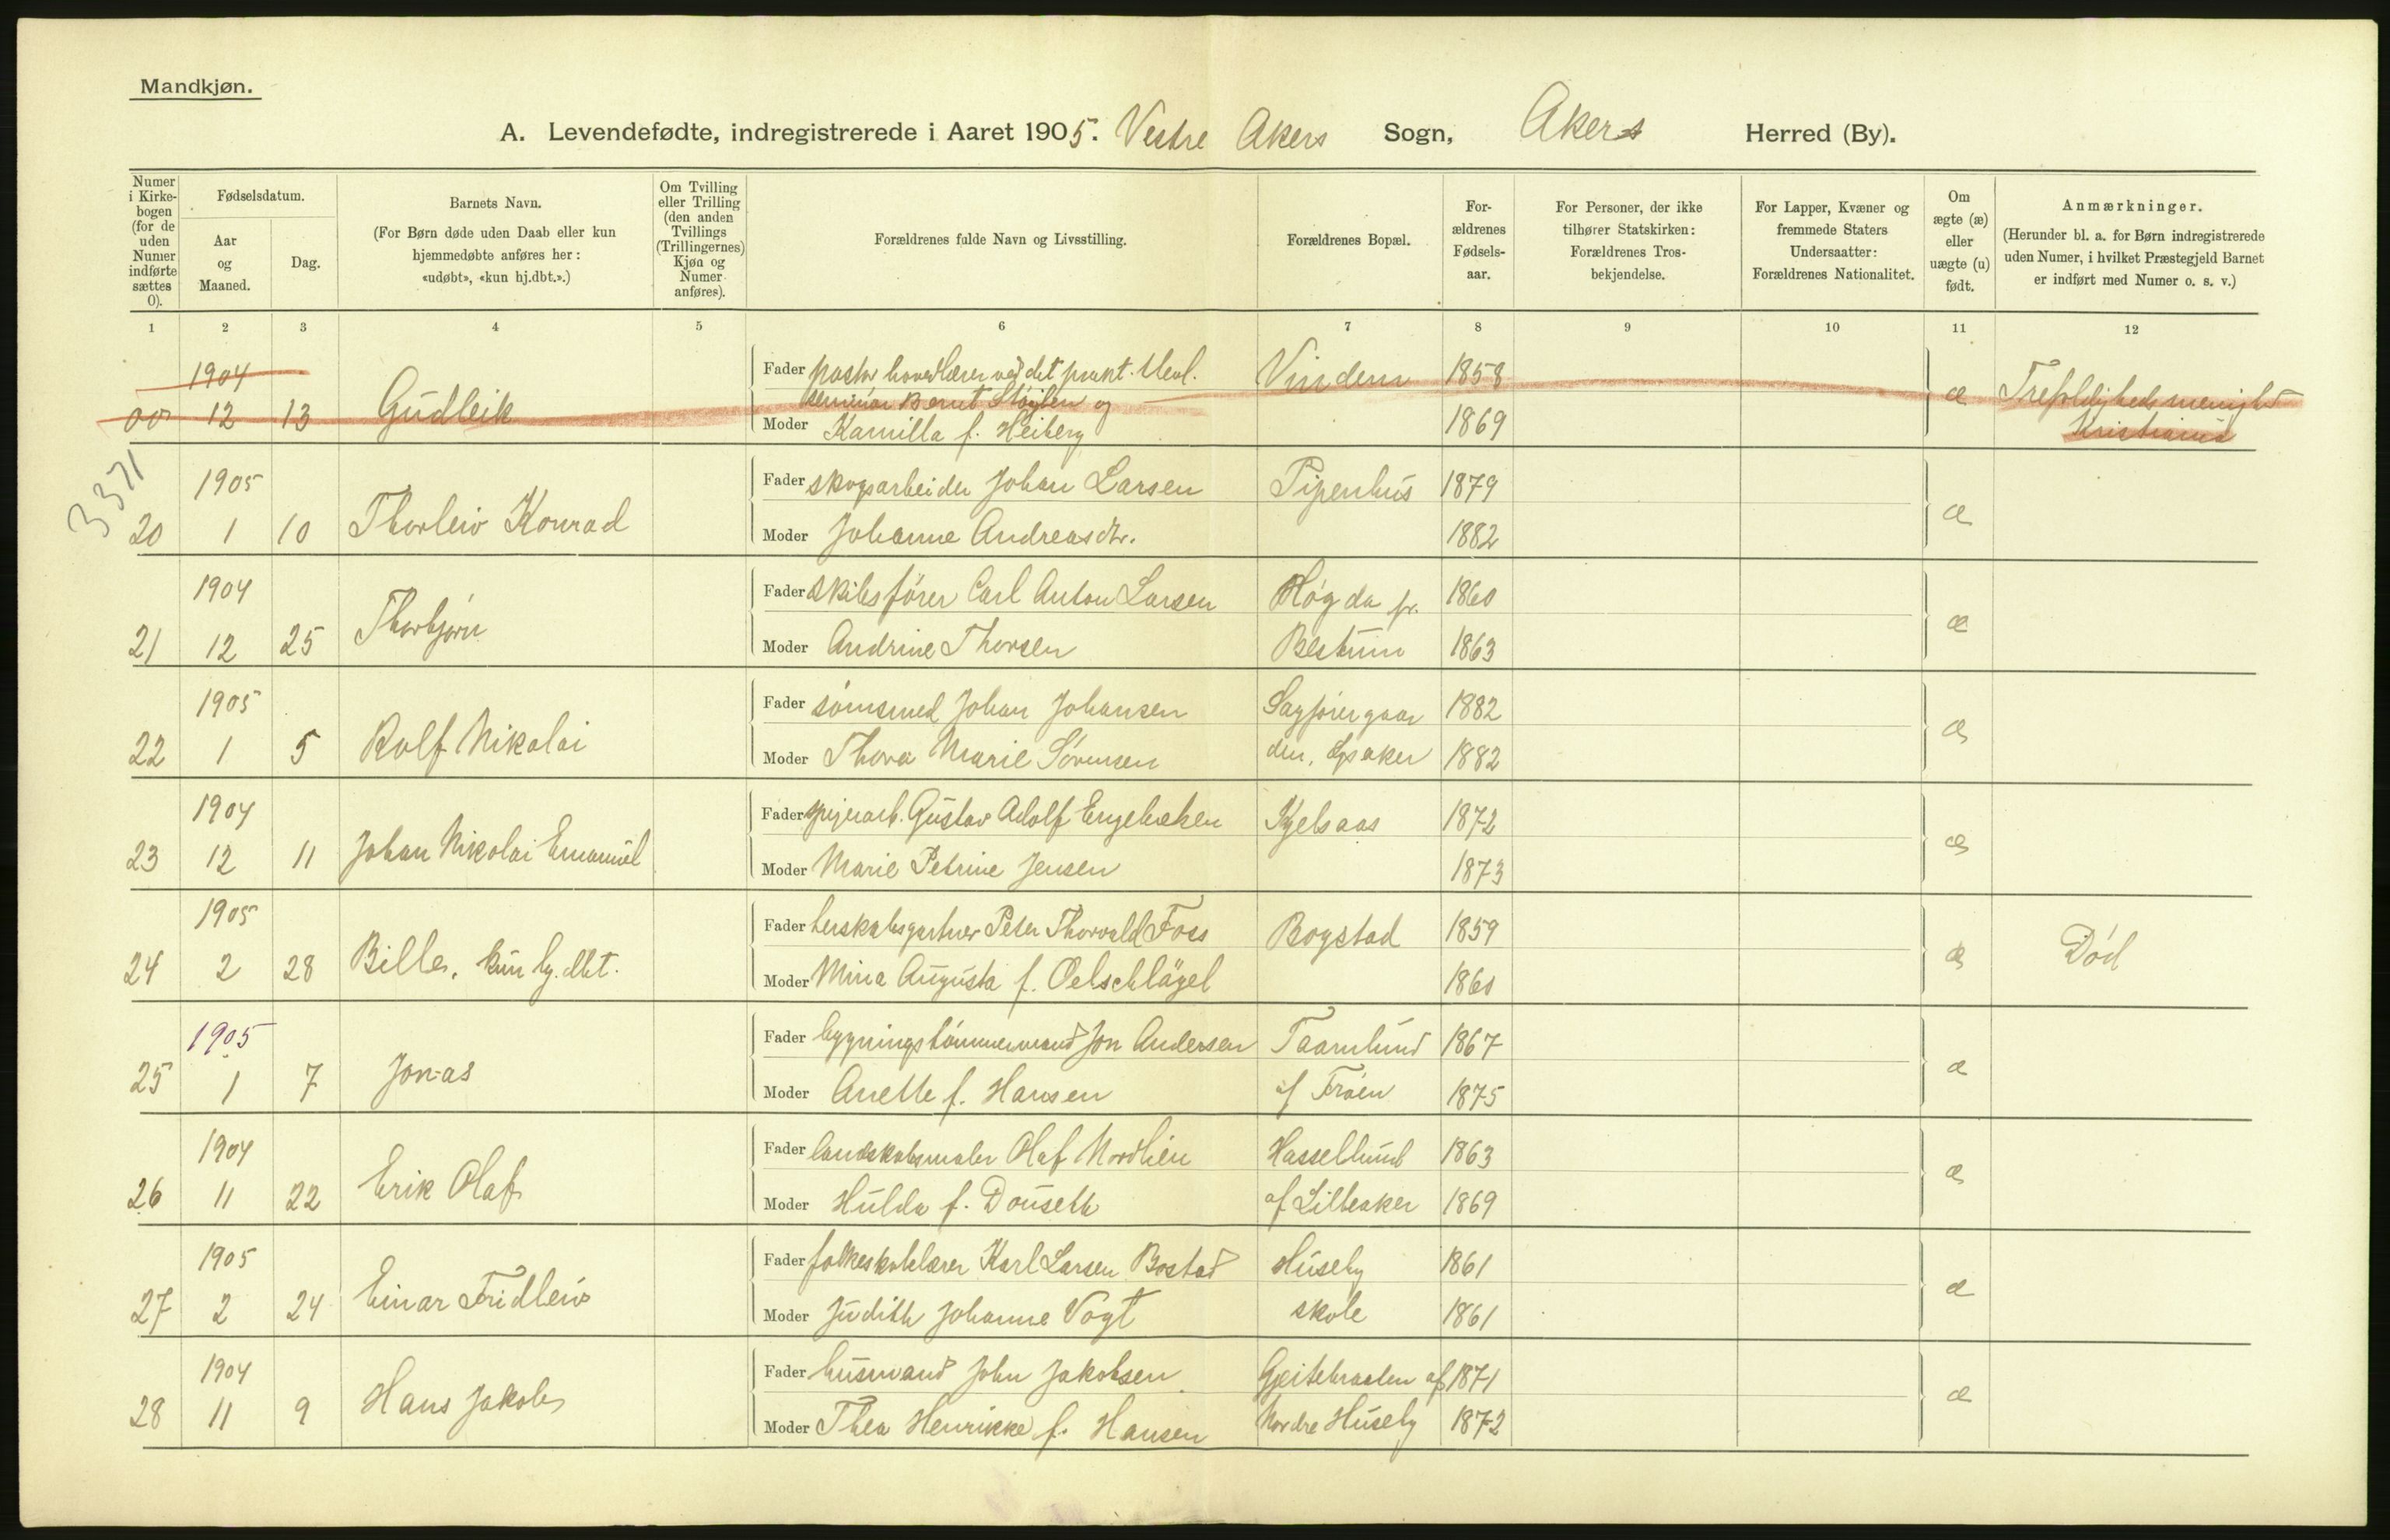 Mandkjøn.
A. Levendefødte, indregistrerede i Aaret 1905. Vestre Akers Sogn, Akers Herred (By).
Numer i Kirkebogen (for de uden Numer indførte sættes 0).
Fødselsdatum.
Aar og Maaned.
Dag.
Barnets Navn.
(For Børn døde uden Daab eller kun hjemmedøbte anføres her: «udøbt», «kun hj.dbt.».)
Om Tvilling eller Trilling (den anden Tvillings (Trillingernes) Kjøn og Numer anføres).
Forældrenes fulde Navn og Livsstilling.
Forældrenes Bopæl.
Forældrenes Fødselsaar.
For Personer, der ikke tilhører Statskirken: Forældrenes Trosbekjendelse.
For Lapper, Kvæner og fremmede Staters Undersaatter: Forældrenes Nationalitet.
Om ægte (æ) eller uægte (u) født.
Anmærkninger.
(Herunder bl. a. for Børn indregistrerede uden Numer, i hvilket Præstegjeld Barnet er indført med Numer o. s. v.)
1 2 3 4 5 6 7 8 9 10 11 12
1904 Fader pastor hovedlærer ved det prakt. theol. Vindern 1858
seminar Bernt Støylen og
00 12 13 Gudleik Moder Kamilla f. Heiberg 1869 æ Trefoldigheds menighed
Kristiania
3371
1905 Fader skogsarbeider Johan Larsen Pipenhus 1879
20 1 10 Thorleiv Konrad Moder Johanne Andreasdtr. 1882 æ
1904 Fader skibsfører Carl Anton Larsen Høgda pr. 1860
21 12 25 Thorbjørn Moder Andrine Thorsen Bestum 1863 æ
1905 Fader sømsmed Johan Johansen Sagførergaar 1882
22 1 5 Rolf Nikolai Moder Thora Marie Sørensen den, Lysaker 1882 æ
1904 Fader Gustav Adolf Engebretsen Kjelsaas 1872
23 12 11 Johan Nikolai Emanuel Moder Marie Petrine Jensen 1873 æ
1905 Fader herskabsgartner Peter Thorvald Foss Bogstad 1859
24 2 28 Bille, kun hj. dbt. Moder Mina Augusta f. Oelschlägel 1860 æ Død
1905 Fader bygningstømmermand Jon Andersen Taarnlund 1867
25 1 7 Jonas Moder Anette f. Hansen af Frøen 1875 æ
1904 Fader landskabsmaler Olaf Nordlien Hassellund 1863
26 11 22 Erik Olaf Moder Hulda f. Douseth af Lilleaker 1869 æ
1905 Fader folkeskolelærer Karl Larsen Bostad Huseby 1861
27 2 24 Einar Fridleiv Moder Judith Johanne Vogt skole 1861 æ
1904 Fader husmand John Jakobsen Gjeitebraaten af 1871
28 11 9 Hans Jakob Moder Thea Henrikke f. Hansen Nordre Huseby 1872 æ